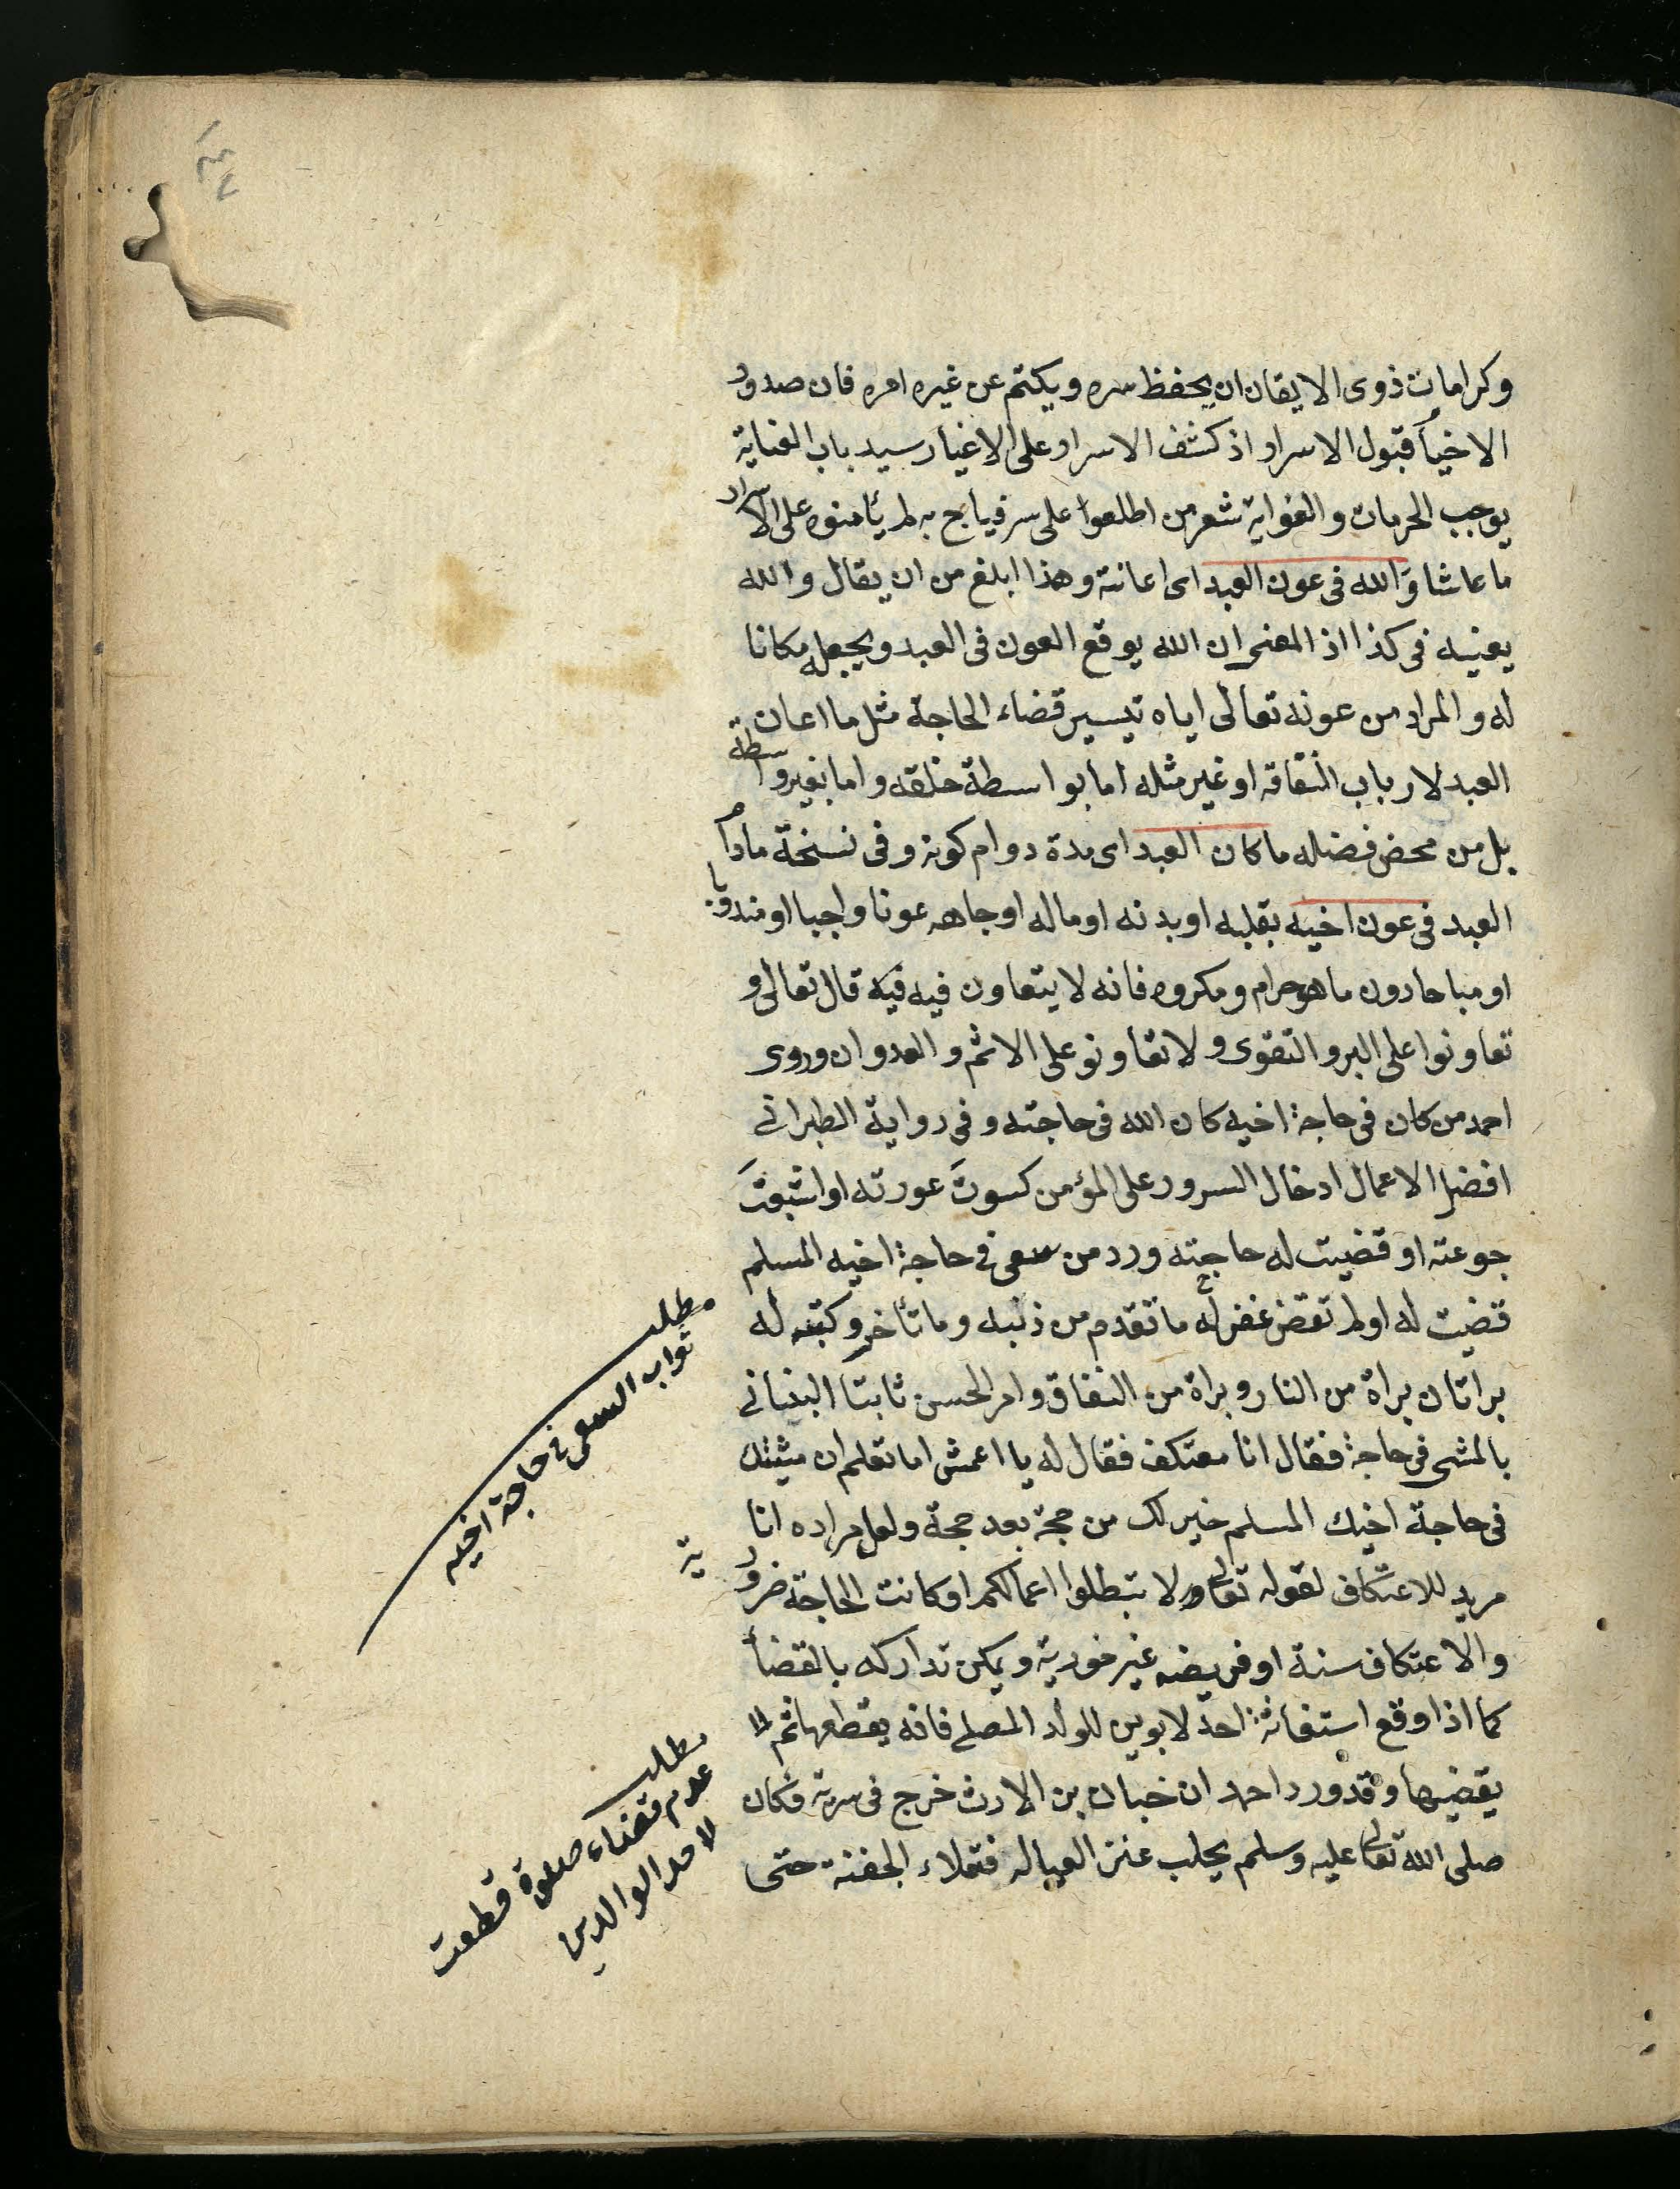 وكرامات ذوى الايقان ان يحفظ سره ويكتم عن غيره امره فان صدور
الاخيأر قبول الاسرار اذ كشف الاسرار على الاغيار سيد باب العناية
يوجب الحرمان والغواية شعر من اطلعوا على سر فباح به لم يأمنوه على الاسرار
ما عاشا والله فى عون العبد اى اعانته وهذا ابلغ من ان يقال والله
يعينه فى كذا اذ المعنى ان الله يوقع العون فى العبد ويجعله مكانا
له والمراد من عونه تعالى اياه تيسير قضاء الحاجة مثل ما اعان
العبد لارباب الفاقة او غير مثله اما بواسطة خلقه واما بغير واسطة
بل من محض فضله ما كان العبد اى مدة دوام كونه وفى نسخة مادام
العبد فى عون اخيه بقلبه او بدنه او ماله او جاهه عونا واجبا او مندوبا
او مباحا دون ما هو حرام ومكروه فانه لا يتعاون فيه فيه قال تعالى و
تعاونوا على البر والتقوى ولا تعاونو على الاثم والعدوان وروى
احمد من كان فى حاجة اخيه كان الله فى حاجته وفى رواية الطبرانى
افضل الاعمال ادخال السرور على المؤمن كسوت عورته او اشبعت
جوعته او قضيت له حاجته ورد من سعى فى حاجة اخيه المسلم
قضيت له اولم تقض غفر له ما تقدم من ذنبه وما تأخر وكتب له
براتان براة من النار وبراة من النفاق وامر الحسن ثابتا البنانى
بالمشى فى حاجة فقال انا معتكف فقال له يا اعمش اما تعلم ان مشيتك
فى حاجة اخيك المسلم خير لك من حجة بعد حجة ولعل مراده انا
مريد للاعتكاف لقوله تعالى ولا تبطلوا اعمالكم او كانت الحاجة ضرورية
والاعتكاف سنة او فريضه غير فورية ويمكن تداركه بالقضأ
كما اذا وقع استغاثة احد لابوين للولد المصلى فانه يقطعها ثم لا
يقضيها وقد ورد احمد ان خباب بن الارث خرج فى سرية فكان
صلى الله تعالى عليه وسلم يحلب عنز العياله فتملاء الجفنة حتى
مطلب
ثواب السعى فى حاجة اخيه
مطلب
عدم قضاء صلوة قطعت
لاحد الوالدين